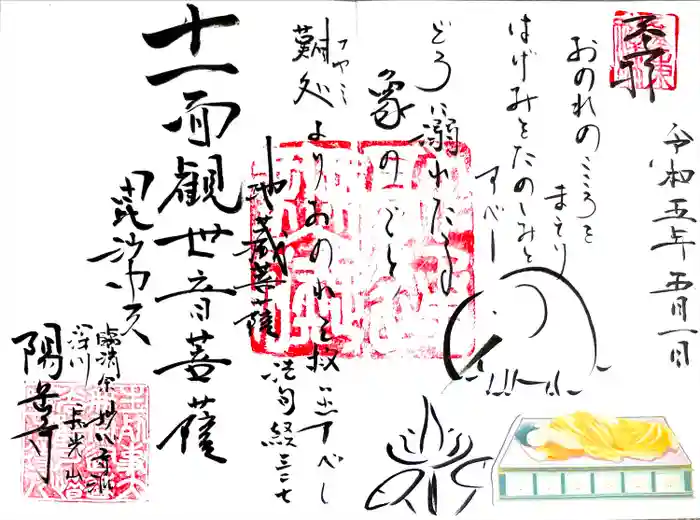 奉拝
令和五年五月一日
おのれのこころを
まもり
はげみをたのしみと
すべし
どろに溺れたる
象のごと
難処よりおのれを救出すべし
ナヤミ
法句経三二七
地蔵菩薩
十一面観世音菩薩
毘沙門天
臨済宗妙心寺派
深川 長光山
陽岳寺